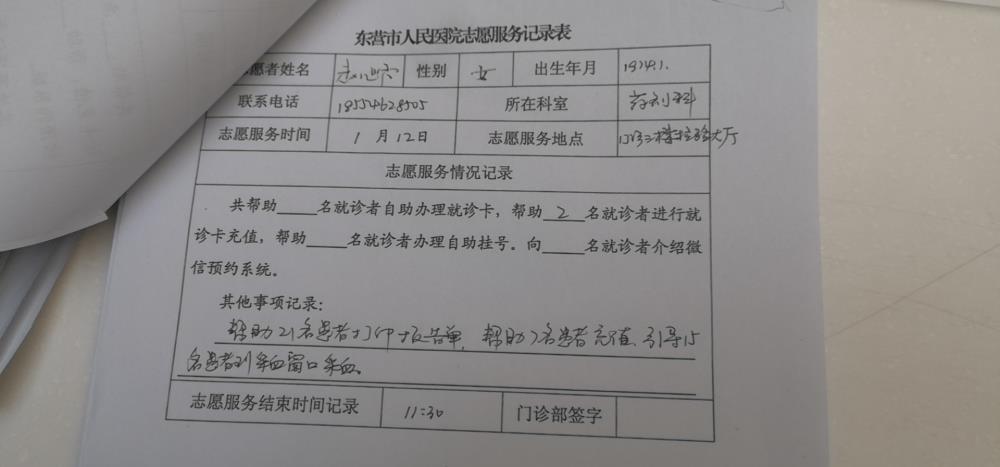 东营市人民医院志愿服务记录表
愿者姓名 性别 女 出生年月 1974.1.
联系电话 18554628505 所在科室 药剂科
志愿服务时间 1月12日 志愿服务地点 门诊三楼检验大厅
志愿服务情况记录
共帮助____名就诊者自助办理就诊卡，帮助 2 名就诊者进行就
诊卡充值，帮助____名就诊者办理自助挂号。向____名就诊者介绍微
信预约系统。
其他事项记录：
帮助21名患者打印报告单，帮助2名患者充值、引导15
名患者到采血窗口采血。
志愿服务结束时间记录 11:30 门诊部签字